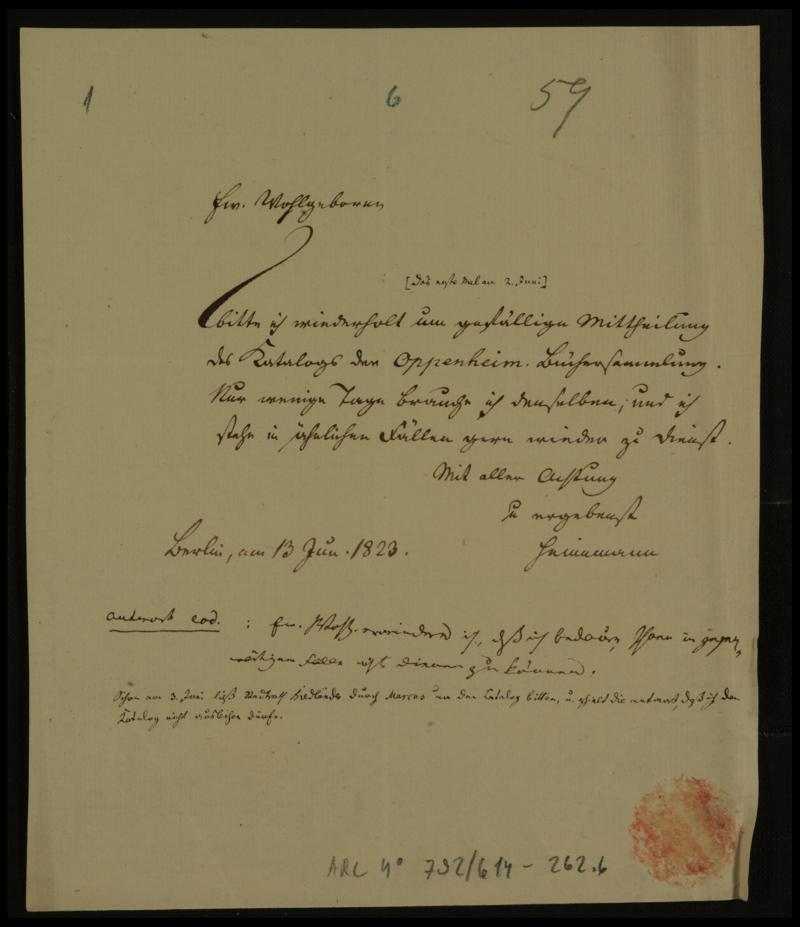 1 6 59
Ew. Wohlgeboren
[Das erste Mal am 2. Juni]
bitte ich wiederholt um gefällige Mittheilung
des Katalogs der Oppenheim. Büchersammlung.
Nur wenige Tage brauche ich denselben; und ich
stehe in ähnlichen Fällen gern wieder zu Dienst.
Mit aller Achtung
ergebenst
Berlin, am 13 Jun. 1823. Heinemann
Antwort eod. : Ew. Wohlg. erwiedere ich, daß ich bedaure, Ihnen in gegen-
wärtigem Falle nicht dienen zu können.
Schon am 3. Juni ließ Friedländer durch Marcus um den Catalog bitten, u. erhielt die Antwort, daß ich den
Katalog nicht ausleihen dürfe.
ARC 4° 792/614 - 262.6